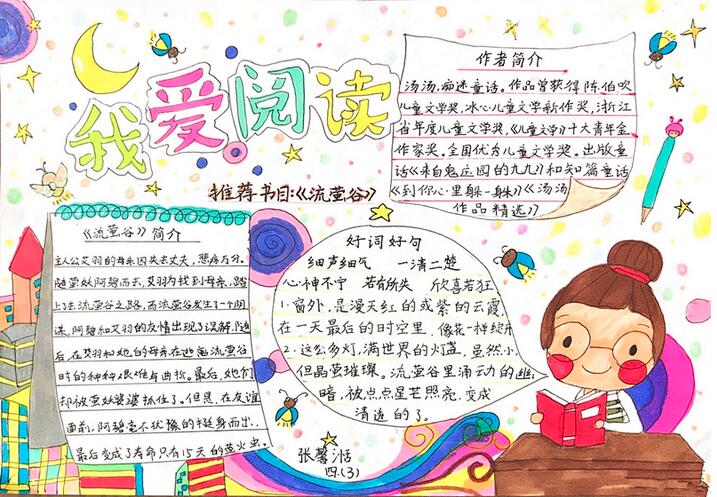 我爱阅读
推荐书目:《流萤谷》
作者简介
汤汤,痴迷童话。作品曾获得陈伯吹
儿童文学奖,冰心儿童文学新作奖,浙江
省年度儿童文学奖,《儿童文学》十大青年金
作家奖。全国优秀儿童文学奖。出版童
话《来自鬼庄园的九九》和短篇童话
《到你心里躲一躲》《汤汤
作品精选》
《流萤谷》简介
主人公艾羽的母亲因失去丈夫,悲痛万分。
随萤妖阿碧而去,艾羽为找到母亲,踏
上去流萤谷之路,而流萤谷发生了一个阴
谋,阿碧和艾羽的友情出现了误解,随
后,在艾羽和她的母亲在逃离流萤谷
时的种种艰难与曲折。最后,她们
却被萤妖婆婆抓住了。但是,在友谊
面前,阿碧毫不犹豫的挺身而出,
最后变成了寿命只有15天的萤火虫。
好词好句
细声细气 一清二楚
心神不宁 若有所失 欣喜若狂
1.窗外,是漫天红的或紫的云霞,
在一天最后的时空里,像花一样绽开
2.这么多灯,满世界的灯盏,虽然小,
但晶莹璀璨。流萤谷里涌动的幽
暗,被点点星芒照亮,变成
清透的了。
张馨恬
四.(3)